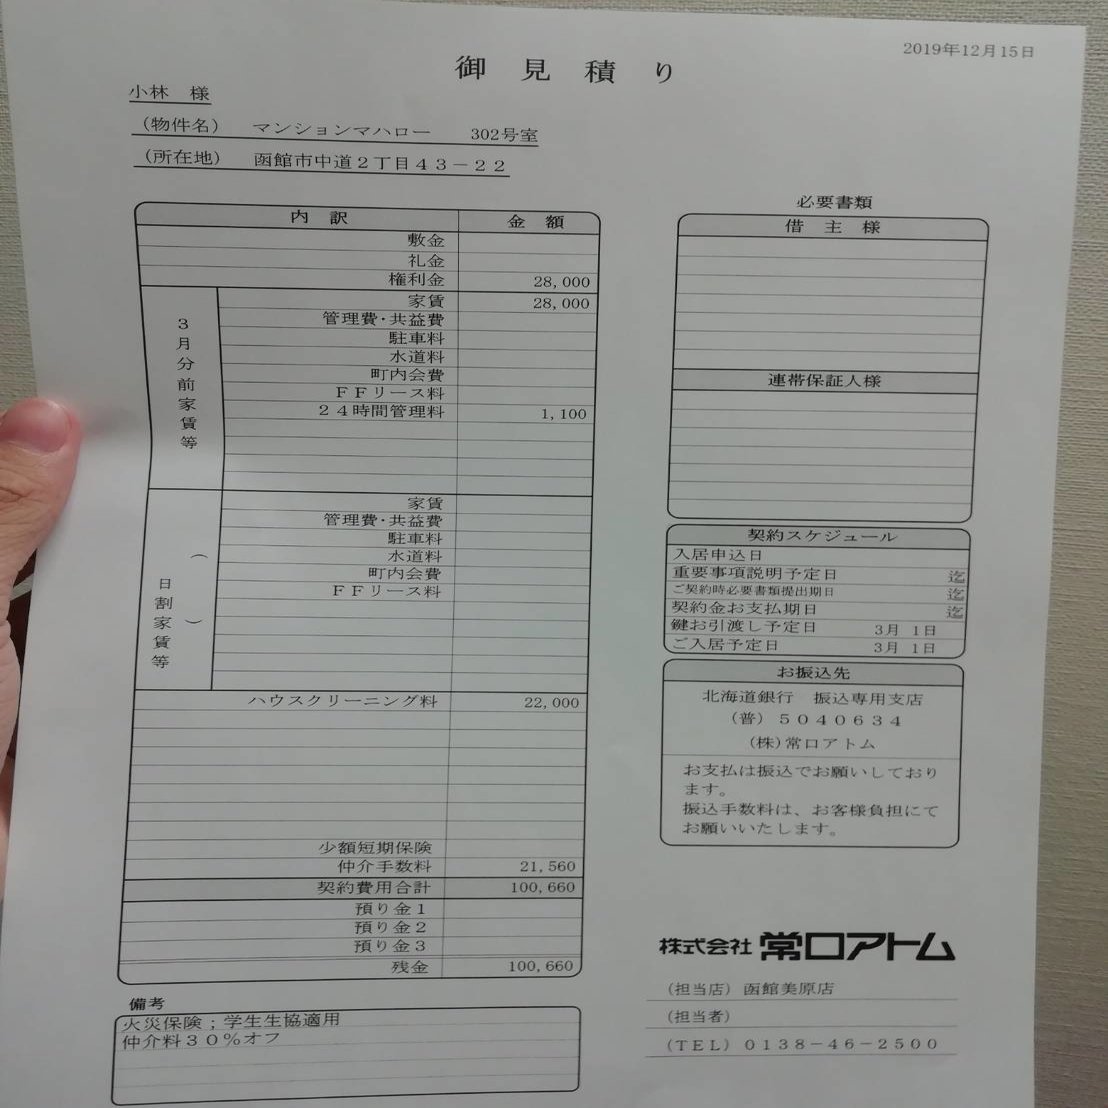 2019年12月15日
御見積り
小林 様
(物件名) マンションマハロー 302号室
(所在地) 函館市中道2丁目43-22
内訳 金額
敷金
礼金
権利金 28,000
3月分前家賃等
家賃 28,000
管理費・共益費
駐車料
水道料
町内会費
FFリース料
24時間管理料 1,100
日割家賃等 ( )
家賃
管理費・共益費
駐車料
水道料
町内会費
FFリース料
ハウスクリーニング料 22,000
少額短期保険
仲介手数料 21,560
契約費用合計 100,660
預り金1
預り金2
預り金3
残金 100,660
備考
火災保険;学生生協適用
仲介料30%オフ
必要書類
借主様
連帯保証人様
契約スケジュール
入居申込日
重要事項説明予定日 迄
ご契約時必要書類提出期日 迄
契約金お支払期日 迄
鍵お引渡し予定日 3月 1日
ご入居予定日 3月 1日
お振込先
北海道銀行 振込専用支店
(普) 5040634
(株)常口アトム
お支払は振込でお願いしており
ます。
振込手数料は、お客様負担にて
お願いいたします。
株式会社 常口アトム
(担当店) 函館美原店
(担当者)
(TEL) 0138-46-2500